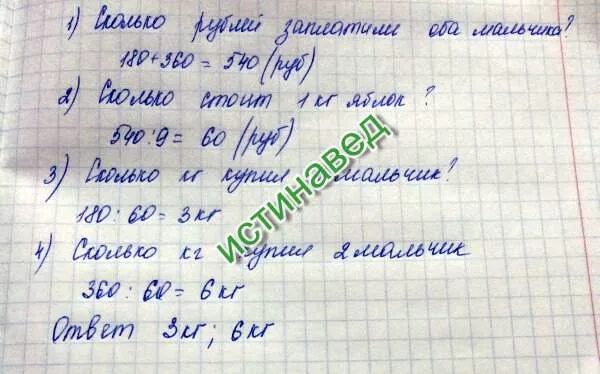 1) Сколько рублей заплатили оба мальчика?
180+360 = 540 (руб)
2) Сколько стоит 1 кг яблок?
540:9 = 60 (руб)
3) Сколько кг купил мальчик?
180 : 60 = 3 кг
4) Сколько кг купил 2 мальчик
360 : 60 = 6 кг
Ответ 3 кг; 6 кг
истинавед